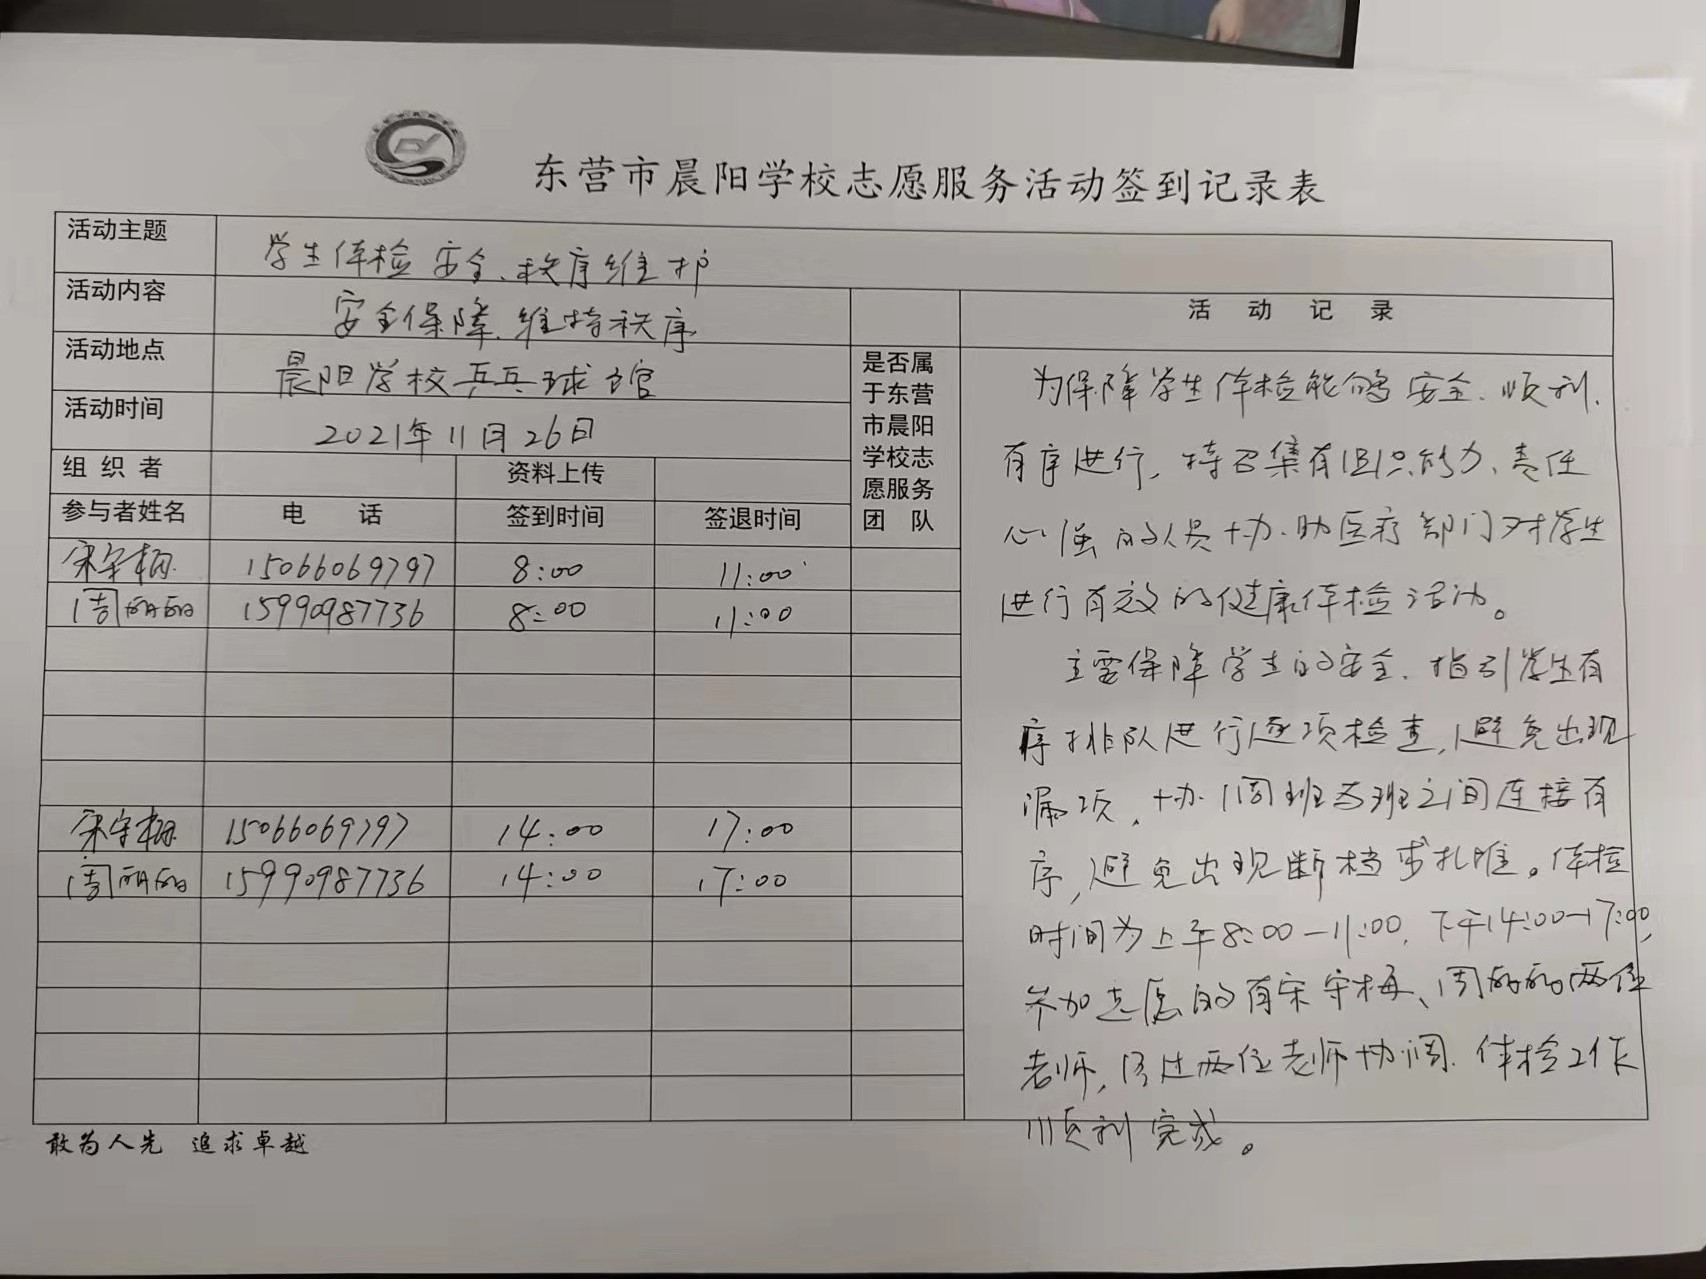 东营市晨阳学校志愿服务活动签到记录表
活动主题 学生体检安全、秩序维护
活动内容 安全保障、维持秩序
活动地点 晨阳学校乒乓球馆
活动时间 2021年11月26日
组织者 资料上传
参与者姓名 电话 签到时间 签退时间
是否属
于东营
市晨阳
学校志
愿服务
团队
宋守梅 15066069797 8:00 11:00
周丽丽 15990987736 8:00 11:00
宋守梅 15066069797 14:00 17:00
周丽丽 15990987736 14:00 17:00
活动记录
为保障学生体检能够安全、顺利、
有序进行，特召集有组织能力、责任
心强的人员协助医疗部门对学生
进行有效的健康体检活动。
主要保障学生的安全、指引学生有
序排队进行逐项检查，避免出现
漏项，协调班与班之间连接有
序，避免出现断档或扎堆。体检
时间为上午8:00—11:00，下午14:00—17:00，
参加志愿的有宋守梅、周丽丽两位
老师，经过两位老师协调，体检工作
顺利完成。
敢为人先 追求卓越